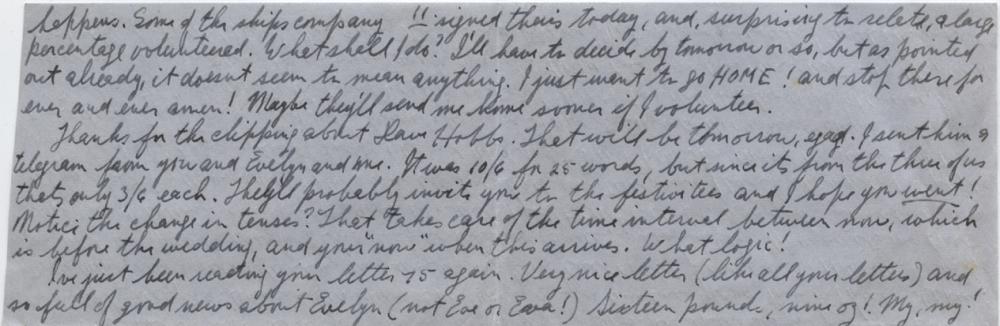 happens. Some of the ships company !! signed theirs today, and, surprising to relate, a large
percentage volunteered. What shall I do? I'll have to decide by tomorrow or so, but as pointed
out already, it doesnt seem to mean anything. I just want to go HOME! and stop there for
ever and ever amen! Maybe they'll send me home sooner if I volunteer.
Thanks for the clipping about Dave Hobbs. That will be tomorrow, egad. I sent him a
telegram from you and Evelyn and me. It was 10/6 for 25 words, but since its from the three of us
thats only 3/6 each. They'll probably invite you to the festivities and I hope you went!
Notice the change in tenses? That takes care of the time interval between now, which
is before the wedding, and your "now" when this arrives. What logic!
I've just been reading your letter 75 again. Very nice letter (like all your letters) and
so full of good news about Evelyn (not Eve or Eva!) Sixteen pound, nine oz! My, my!